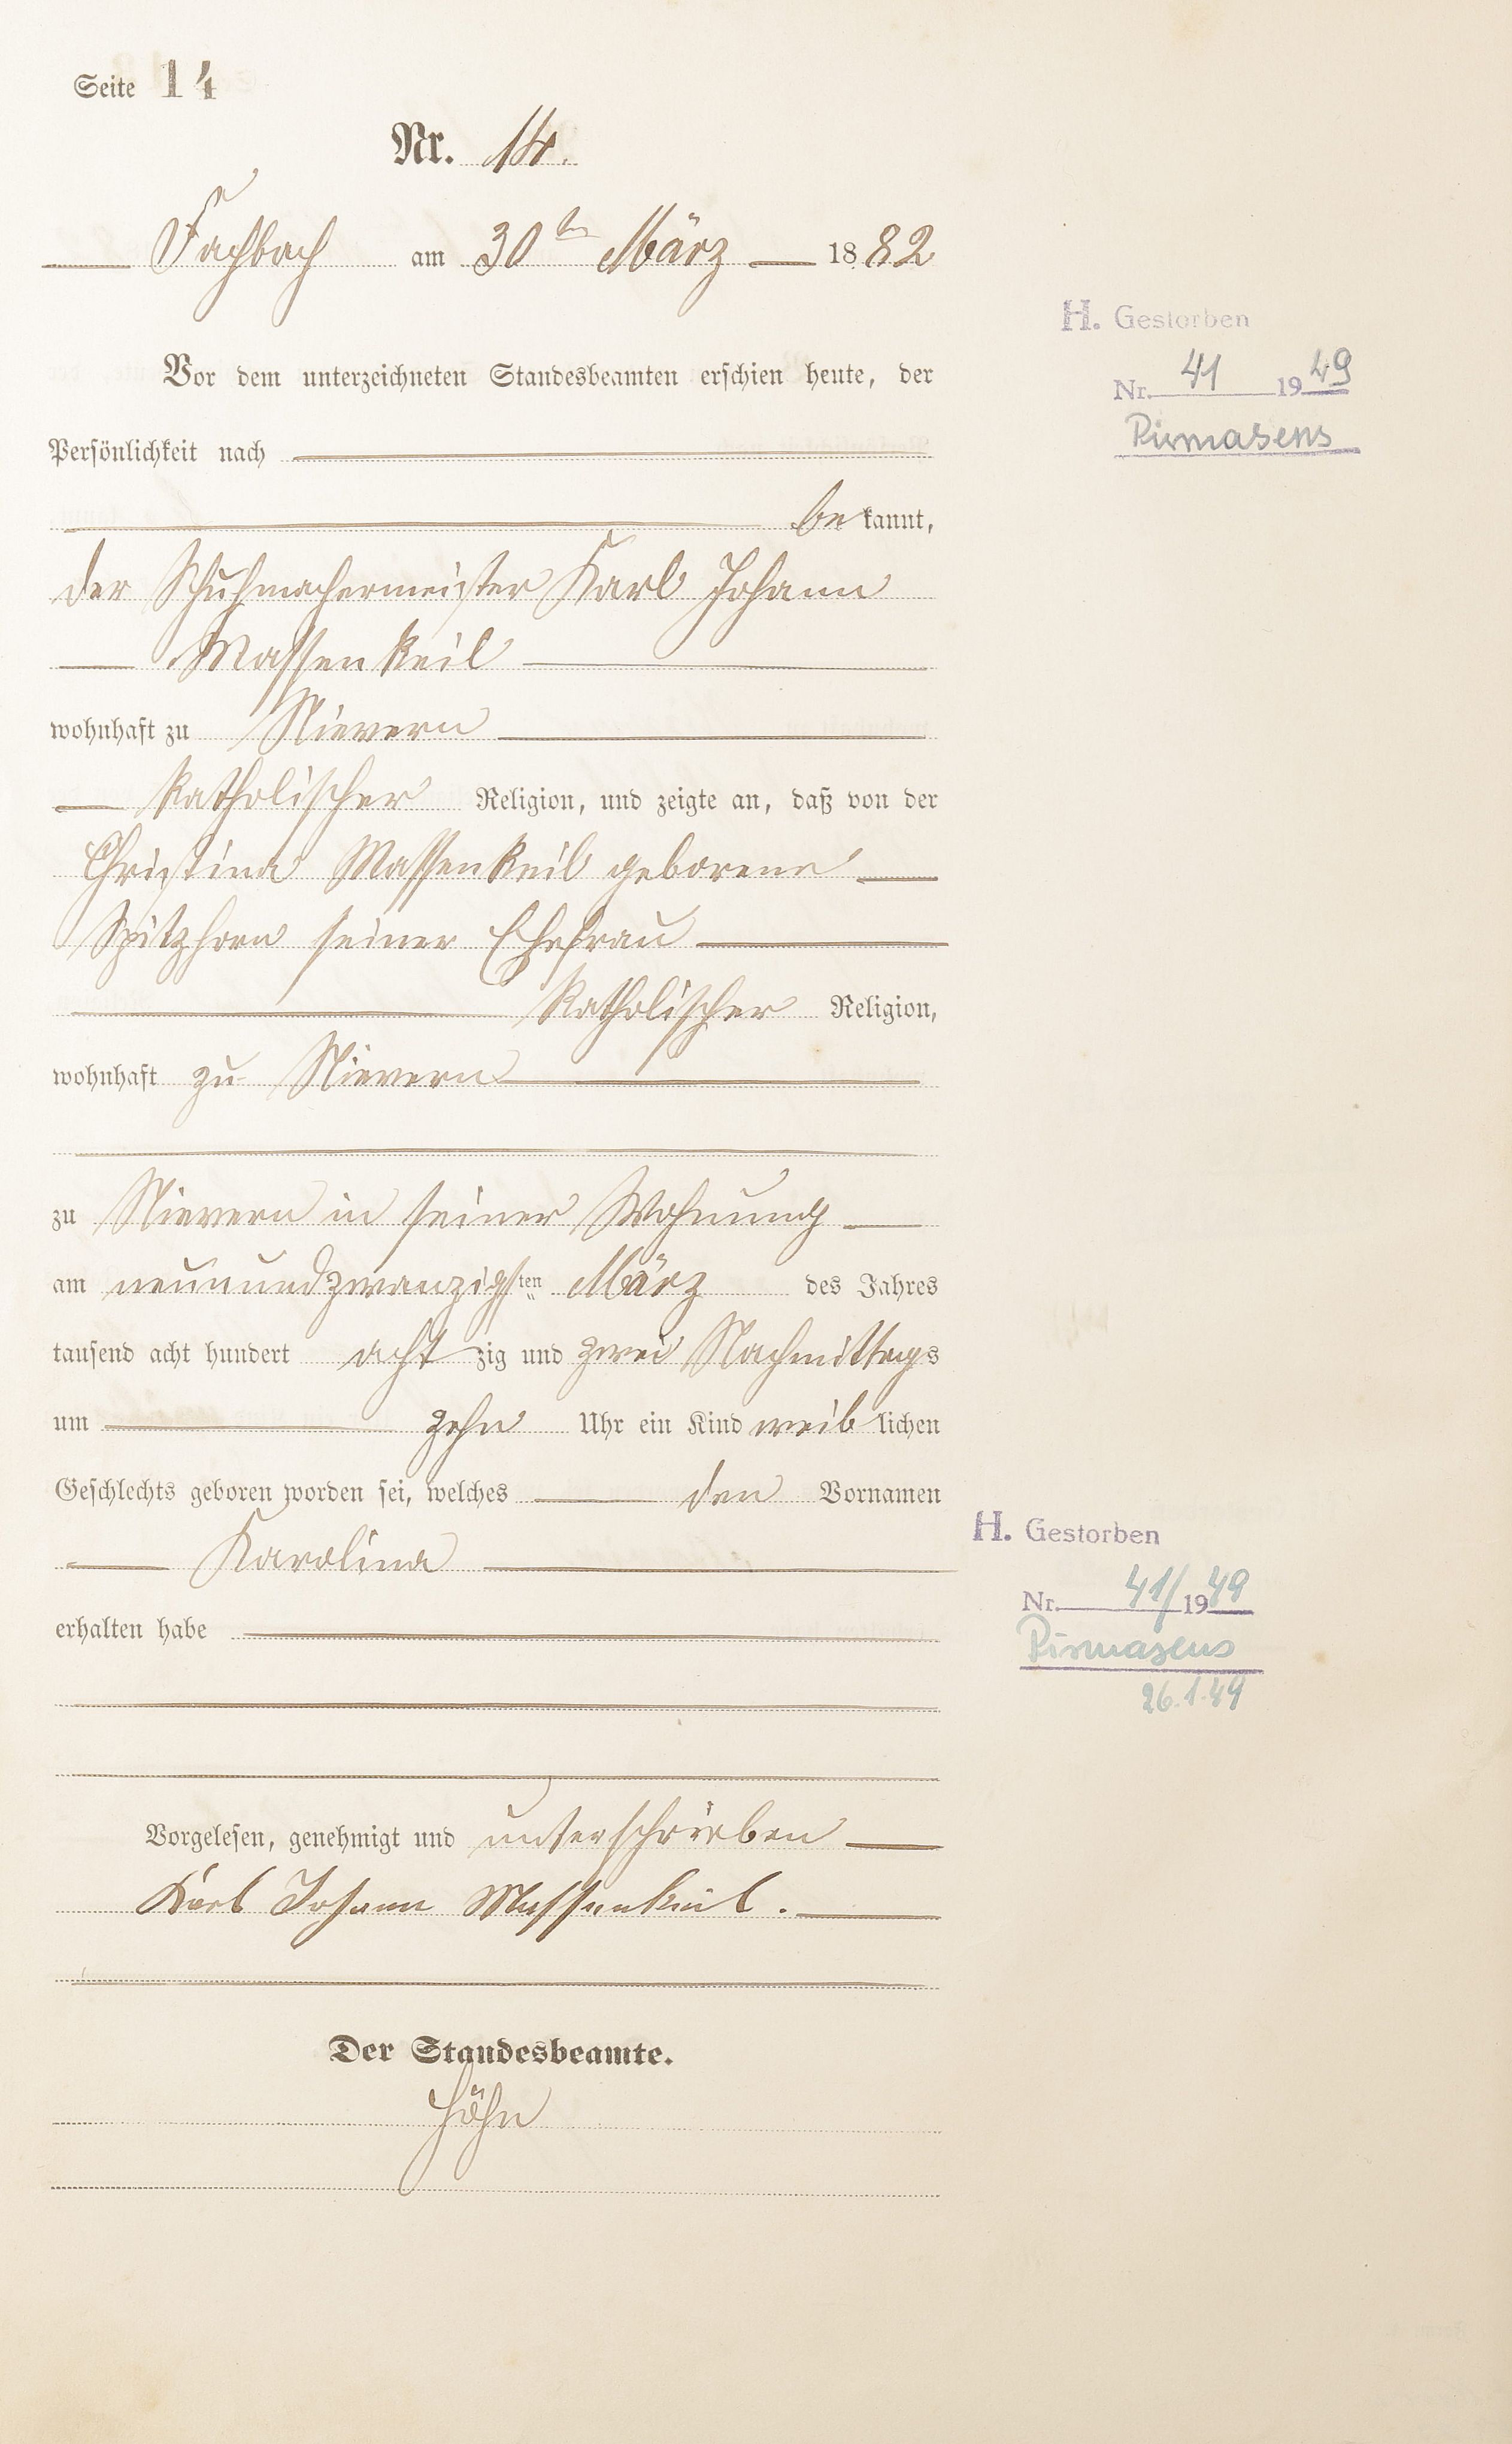 Seite 14
Nr. 14.
Fachbach am 30ten März 1882
H. Gestorben
Nr. 41 1949
Pirmasens
Vor dem unterzeichneten Standesbeamten erschien heute, der
Persönlichkeit nach
bekannt,
der Schuhmachermeister Karl Johann
Massenkeil
wohnhaft zu Nievern
katholischer Religion, und zeigte an, daß von der
Christina Massenkeil geborene
Spitzhorn seiner Ehefrau
katholischer Religion,
wohnhaft zu Nievern
zu Nievern in seiner Wohnung
am neunundzwanzigsten März des Jahres
tausend acht hundert achtzig und zwei Nachmittags
um zehn Uhr ein Kind weiblichen
Geschlechts geboren worden sei, welches den Vornamen
Karolina
erhalten habe
H. Gestorben
Nr. 41/1949
Pirmasens
26.1.49
Vorgelesen, genehmigt und unterschrieben
Karl Johann Massenkeil.
Der Standesbeamte.
Höhn